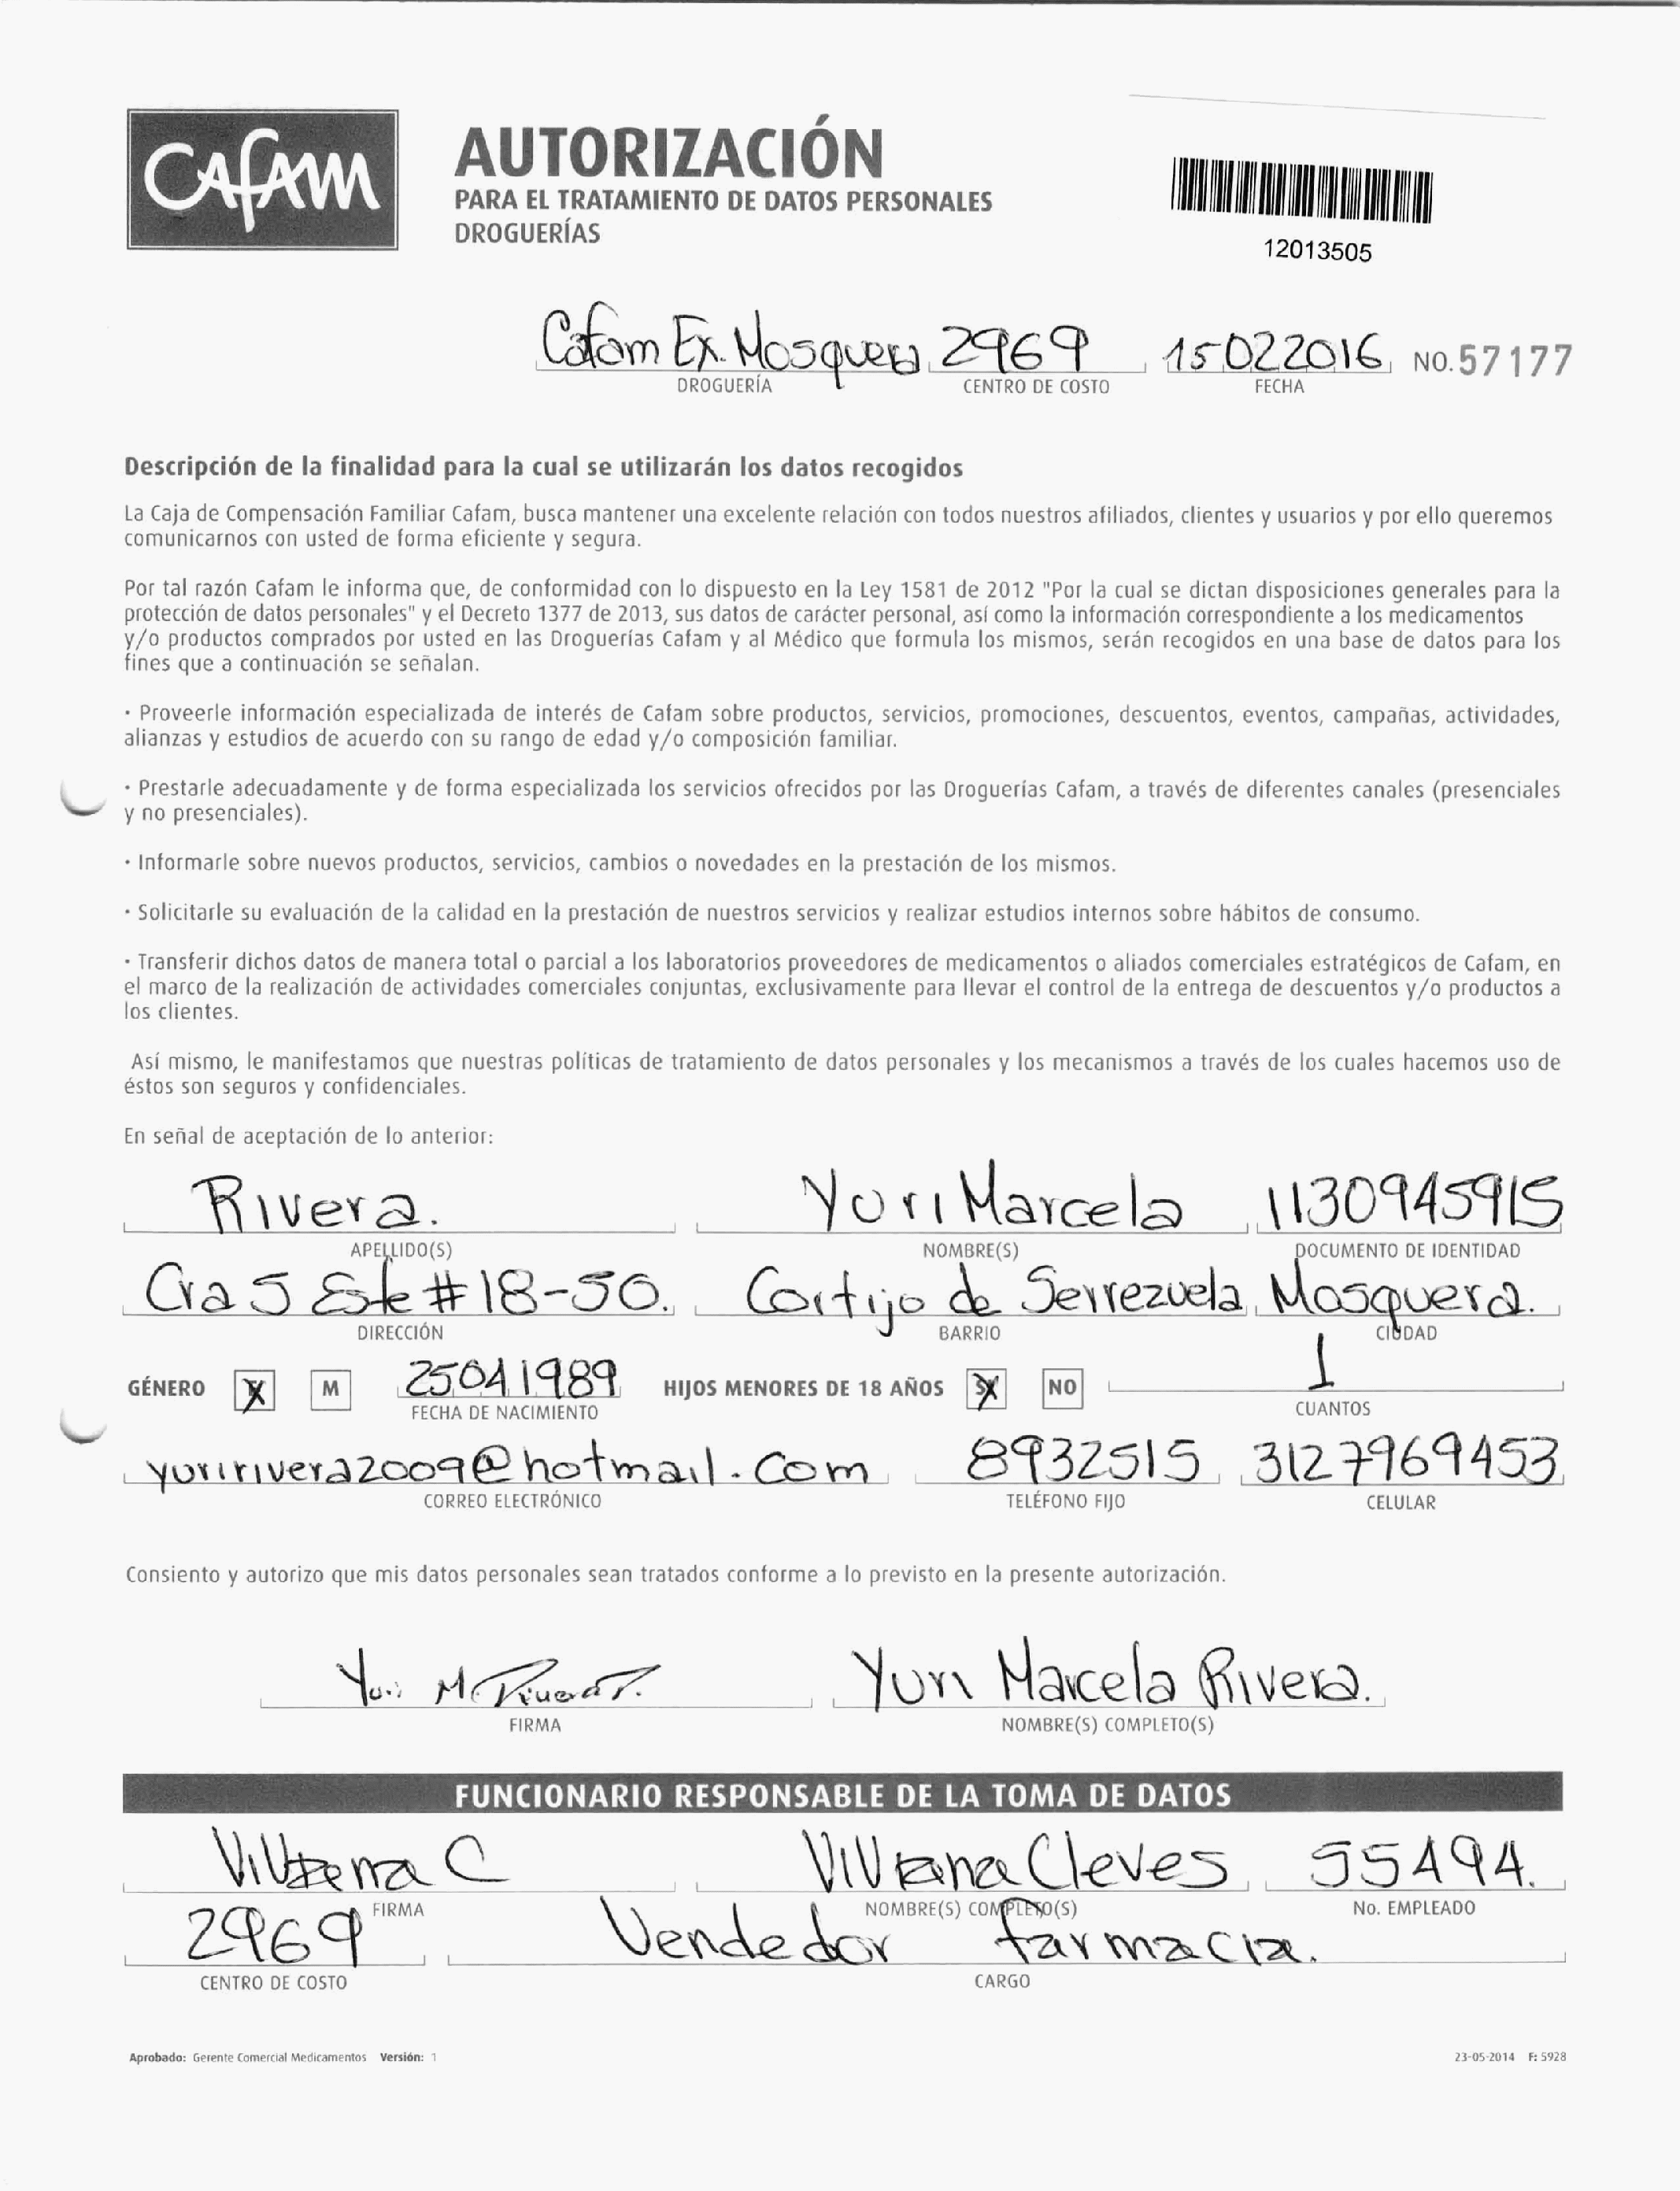 CAFAM
AUTORIZACIÓN
PARA EL TRATAMIENTO DE DATOS PERSONALES
DROGUERÍAS
12013505
Cafam Ex. Mosquera 2969 15022016 NO. 57177
DROGUERÍA CENTRO DE COSTO FECHA
Descripción de la finalidad para la cual se utilizarán los datos recogidos
La Caja de Compensación Familiar Cafam, busca mantener una excelente relación con todos nuestros afiliados, clientes y usuarios y por ello queremos
comunicarnos con usted de forma eficiente y segura.
Por tal razón Cafam le informa que, de conformidad con lo dispuesto en la Ley 1581 de 2012 "Por la cual se dictan disposiciones generales para la
protección de datos personales" y el Decreto 1377 de 2013, sus datos de carácter personal, así como la información correspondiente a los medicamentos
y/o productos comprados por usted en las Droguerías Cafam y al Médico que formula los mismos, serán recogidos en una base de datos para los
fines que a continuación se señalan.
· Proveerle información especializada de interés de Cafam sobre productos, servicios, promociones, descuentos, eventos, campañas, actividades,
alianzas y estudios de acuerdo con su rango de edad y/o composición familiar.
· Prestarle adecuadamente y de forma especializada los servicios ofrecidos por las Droguerías Cafam, a través de diferentes canales (presenciales
y no presenciales).
· Informarle sobre nuevos productos, servicios, cambios o novedades en la prestación de los mismos.
· Solicitarle su evaluación de la calidad en la prestación de nuestros servicios y realizar estudios internos sobre hábitos de consumo.
· Transferir dichos datos de manera total o parcial a los laboratorios proveedores de medicamentos o aliados comerciales estratégicos de Cafam, en
el marco de la realización de actividades comerciales conjuntas, exclusivamente para llevar el control de la entrega de descuentos y/o productos a
los clientes.
Así mismo, le manifestamos que nuestras políticas de tratamiento de datos personales y los mecanismos a través de los cuales hacemos uso de
éstos son seguros y confidenciales.
En señal de aceptación de lo anterior:
Rivera. Yuri Marcela 1130945915
APELLIDO(S) NOMBRE(S) DOCUMENTO DE IDENTIDAD
Cra 5 Este # 18-50. Cortijo de Serrezuela Mosquera.
DIRECCIÓN BARRIO CIUDAD
GÉNERO X M 25041989 HIJOS MENORES DE 18 AÑOS X NO 1
FECHA DE NACIMIENTO CUANTOS
yuririvera2009@hotmail.com 8932515 3127969453
CORREO ELECTRÓNICO TELÉFONO FIJO CELULAR
Consiento y autorizo que mis datos personales sean tratados conforme a lo previsto en la presente autorización.
Yuri M. Rivera Yuri Marcela Rivera.
FIRMA NOMBRE(S) COMPLETO(S)
FUNCIONARIO RESPONSABLE DE LA TOMA DE DATOS
Viviana C Viviana Cleves 55494.
FIRMA NOMBRE(S) COMPLETO(S) No. EMPLEADO
2969 Vendedor farmacia.
CENTRO DE COSTO CARGO
Aprobado: Gerente Comercial Medicamentos Versión: 1 23-05-2014 F: 5928